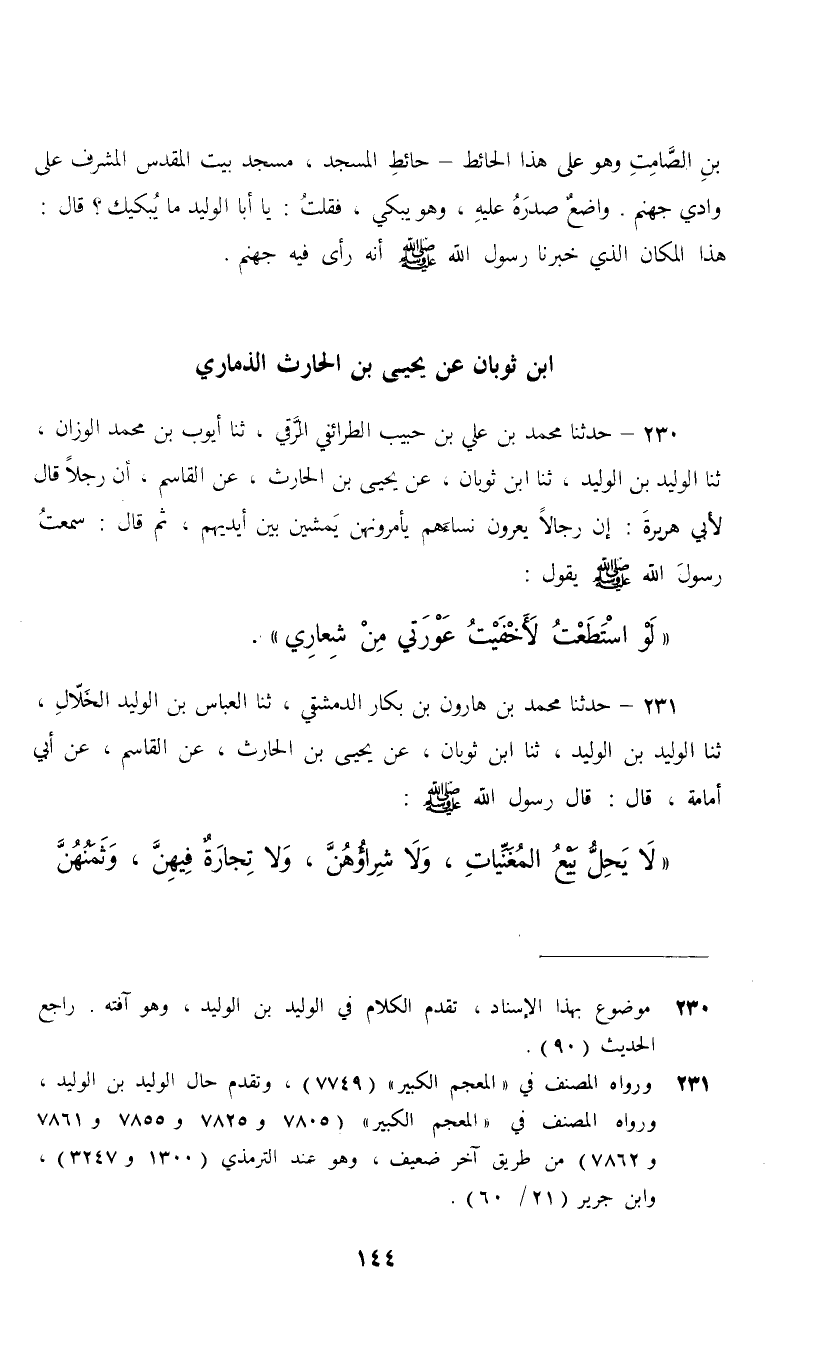 بنِ الصَّامِتِ وهو على هذا الحائط – حائطِ المسجد ، مسجد بيت المقدس المشرف على
وادي جهنم . واضعٌ صدرَهُ عليهِ ، وهو يبكي ، فقلتُ : يا أبا الوليد ما يُبكيك ؟ قال :
هذا المكان الذي خبرنا رسول الله ﷺ أنه رأى فيه جهنم .
ابن ثوبان عن يحيى بن الحارث الذماري
٢٣٠ – حدثنا محمد بن علي بن حبيب الطرائفي الرَّقي ، ثنا أيوب بن محمد الوزان ،
ثنا الوليد بن الوليد ، ثنا ابن ثوبان ، عن يحيى بن الحارث ، عن القاسم ، أن رجلاً قال
لأبي هريرةَ : إن رجالاً يعرون نساءهم يأمرونهن يَمشين بين أيديهم ، ثم قال : سمعتُ
رسولَ الله ﷺ يقول :
« لَوْ اسْتَطَعْتُ لَأَخْفَيْتُ عَوْرَتي مِنْ شِعاري » .
٢٣١ – حدثنا محمد بن هارون بن بكار الدمشقي ، ثنا العباس بن الوليد الخَلّالِ ،
ثنا الوليد بن الوليد ، ثنا ابن ثوبان ، عن يحيى بن الحارث ، عن القاسم ، عن أبي
أمامة ، قال : قال رسول الله ﷺ :
« لَا يَحِلُّ بَيْعُ المُغَنِّياتِ ، وَلَا شِراؤُهُنَّ ، وَلا تِجارَةٌ فِيهِنَّ ، وَثَمَنُهُنَّ
٢٣٠ موضوع بهذا الإسناد ، تقدم الكلام في الوليد بن الوليد ، وهو آفته . راجع
الحديث ( ٩٠ ) .
٢٣١ ورواه المصنف في « المعجم الكبير » ( ٧٧٤٩ ) ، وتقدم حال الوليد بن الوليد ،
ورواه المصنف في « المعجم الكبير » ( ٧٨٠٥ و ٧٨٢٥ و ٧٨٥٥ و ٧٨٦١
و ٧٨٦٢ ) من طريق آخر ضعيف ، وهو عند الترمذي ( ١٣٠٠ و ٣٢٤٧ ) ،
وابن جرير ( ٢١ / ٦٠ ) .
١٤٤